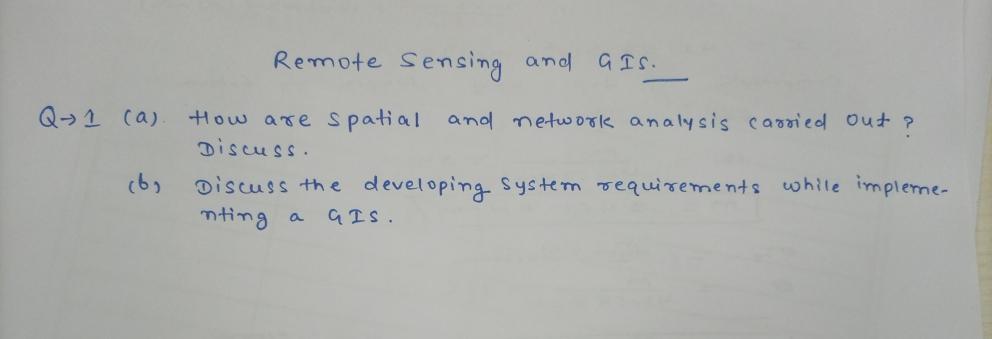 Remote Sensing and GIS.
Q→1 (a). How are spatial and network analysis carried out ?
Discuss.
(b) Discuss the developing system requirements while impleme-
nting a GIS.